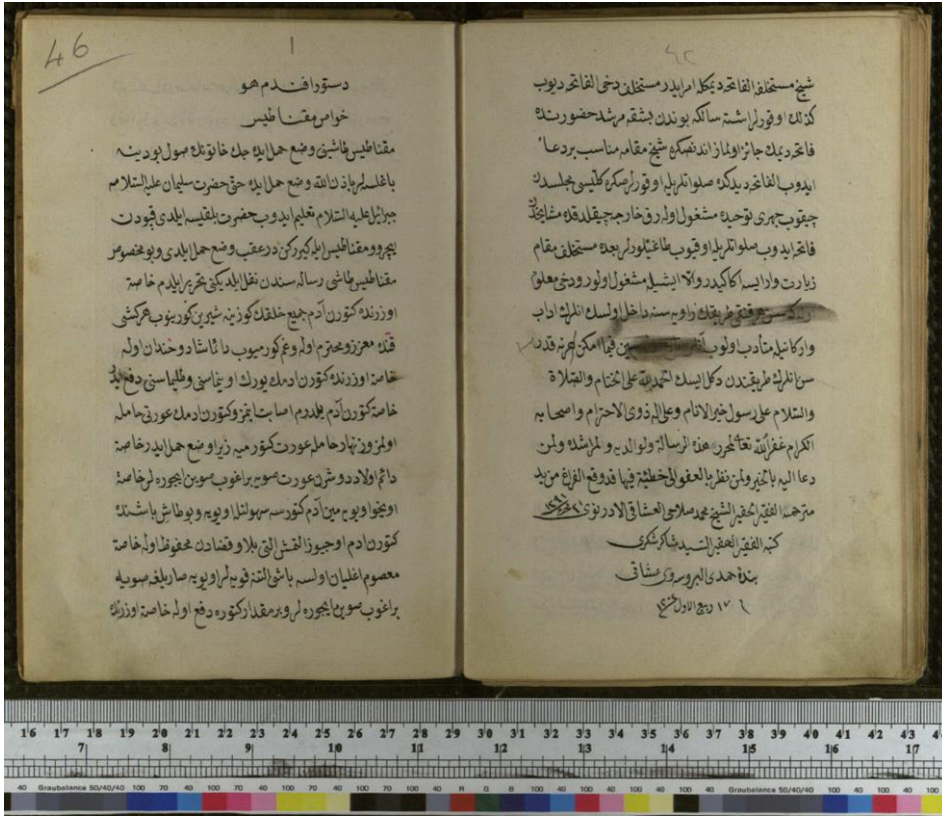 ٤٢
شيخ مستخلفه الفاتحه ديمكله امر ايدر مستخلف دخى الفاتحه ديوب
كذلك اوقورلر اشته سالكه بوندن بشقه مرشد حضورنده
فاتحه ديمك جائز اولماز اندنصكره شيخ مقامه مناسب بر دعا
ايدوب الفاتحه ديدكده صلواتلر يله اوقورلر صكره كليسى مجلسدن
چيقوب جهرى توحيده مشغول اوله رق خارجه چيقلدقده مشايخدن
فاتحه ايدوب صلواتلر يله اوقيوب طاغيلورلر بعده مستخلف مقام
زيارت وار ايسه اكا كيدر والا ايشيله مشغول اولور ودخى معلوم
طريقك زاويه سنه داخل اولسك انلرك اداب
واركانيله متأدب اولوب فيما امكن هر نه قدر
سن انلرك طريقندن دكل ايسك الحمد لله على الختام والصلاة
والسلام على رسول خير الانام وعلى اله ذوى الاحترام واصحابه
الكرام غفر الله تعالى لمحرر هذه الرسالة ولوالديه ولمرشده ولمن
دعا اليه بالخير ولمن نظر بالعفو الى خطيئة فيها قد وقع الفراغ من يد
مترجمه الفقير الحقير الشيخ محمد صلاحى العشاقى الادرنوى
كتبه الفقير الحقير السيد شاكر شكرى
بنده حمدى البروسوى عشاقى
١٧ ربيع الاول
46
١
دستور افندم هو
خواص مقناطيس
مقناطيس طاشينى وضع حمل ايده جك خاتونك صول بودينه
باغلسه لر باذن الله وضع حمل ايده حتى حضرت سليمان عليه السلامه
جبرائيل عليه السلام تعليم ايدوب حضرت بلقيسه ايلدى قپودن
ايچرو ومقناطيس ايله كيرركن در عقب وضع حمل ايلدى وبو مخصوص
مقناطيس طاشى رساله سندن نقل ايلديكنى تحرير ايلدم خاصة
اوزرنده كتورن آدم جميع خلقك كوزينه شيرين كورينوب هر كشى
قتنده معزز ومحترم اوله وغم كورميوب دائما شاد وخندان اوله
خاصة اوزرنده كتورن ادمك يورك اوينامسنى وظلماسنى دفع ايدر
خاصة كتورن آدم يلدرم اصابت ايتمز وكتورن ادمك عورتى حامله
اولمز وزنهار حامله عورت كتورميه زيرا وضع حمل ايدر خاصة
دائم اولاد دوشرن عورت صويه براغوب صوين ايچوره لر خاصة
اويخو اويومين آدم كتورسه سهولتله اويويه وبو طاش باشنده
كتورن ادم اوجيوز التمش التى بلا وقضادن محفوظ اوله خاصة
معصوم اغليان اولسه باشى التنه قويه لر اويويه صاريلغه صويه
براغوب صوين ايچوره لر وبر مقدار كتوره دفع اوله خاصة اوزرنده